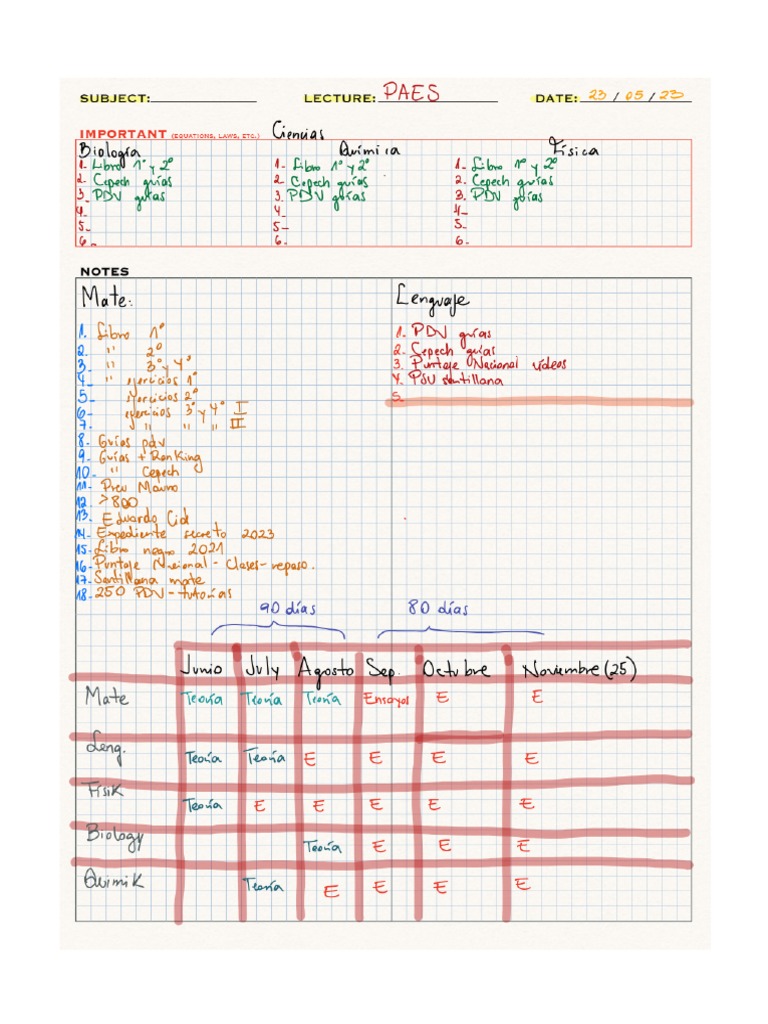 SUBJECT: LECTURE: PAES DATE: 23 / 05 / 23
IMPORTANT (EQUATIONS, LAWS, ETC.) Ciencias
Biología Química Física
1- Libro 1° y 2° 1- Libro 1° y 2° 1. Libro 1° y 2°
2. Cepech guías 2 Cepech guías 2. Cepech guías
3- PDV guías 3. PDV guías 3. PDV guías
4- 4- 4-
5- 5- 5-
6- 6- 6-
NOTES
Mate: Lenguaje
1. Libro 1°
2. " 2°
3- " 3° y 4°
4- " ejercicios 1°
5- ejercicios 2°
6- ejercicios 3° y 4° I
7- " " " II
8- Guías pdv
9- Guías + Ranking
10- " Cepech
11- Preu Mauro
12 >800
13. Eduardo Cid
14- Expediente secreto 2023
15- Libro negro 2021
16- Puntaje Nacional - Clases - repaso.
17- Santillana mate
18- 250 PDV - tutorías
1. PDV guías
2. Cepech guías
3. Puntaje Nacional vídeos
4. PSU Santillana
5-
90 días 80 días
Junio July Agosto Sep. Octubre Noviembre (25)
Mate Teoría Teoría Teoría Ensayos E E
Leng. Teoría Teoría E E E E
Fisik Teoría E E E E E
Biology Teoría E E E
Quimik Teoría E E E E